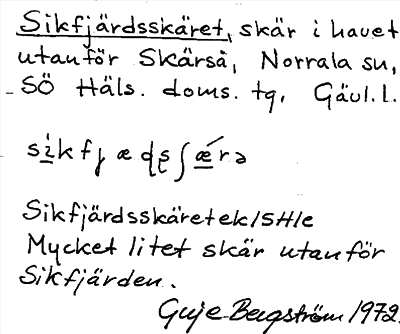 Sikfjärdsskäret, skär i havet
utanför Skärså, Norrala sn,
SÖ Häls. doms. tg, Gävl. l.
Sikfjärdsskäret ek/SH/e
Mycket litet skär utanför
Sikfjärden.
Guje Bergström 1972.